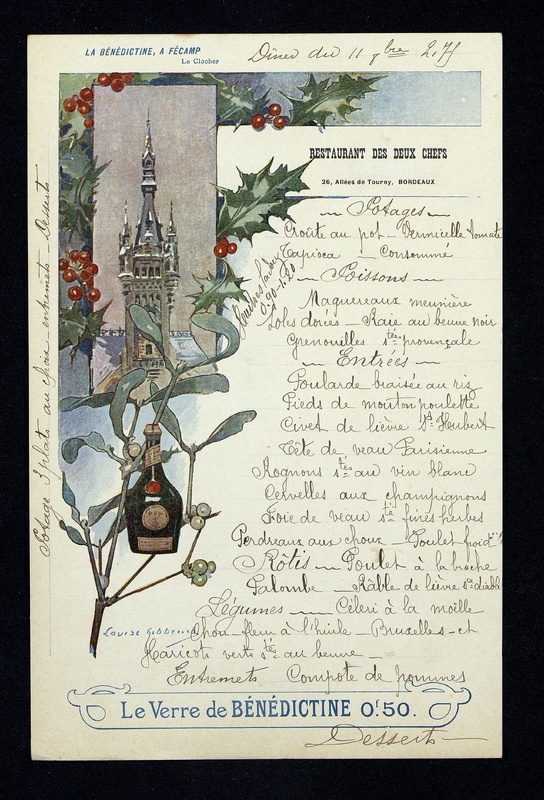 LA BÉNÉDICTINE, A FÉCAMP
Le Clocher
Dîner du 11 9bre 2,75
RESTAURANT DES DEUX CHEFS
26, Allées de Tourny, BORDEAUX
Potages
Croûte au pot - Vermicelle tomate
Tapioca - Consommé
Huîtres
0.90 - 1.20
Poissons
Maquereaux meunière
Soles dorées - Raie au beurre noir
Grenouilles stées provençale
Entrées
Poularde braisée au riz
Pieds de mouton poulette
Civet de lièvre St Heubert
Tête de veau Parisienne
Rognons stés au vin blanc
Cervelles aux champignons
Foie de veau sté fines herbes
Perdreaux aux choux - Poulet froid
Rôtis - Poulet à la broche
Palombe - Râble de lièvre sce diable
Légumes - Céleri à la moëlle
Chou-fleur à l'huile - Bruxelles - et
Haricots verts stés au beurre -
Entremets Compote de pommes
Desserts
Potage 3 plats au choix - entremets - Desserts
LOUISE GIBBENS
Le Verre de BÉNÉDICTINE 0f.50.